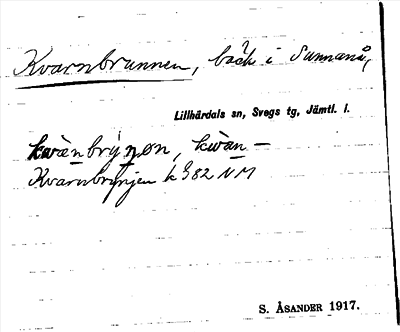 Kvarnbrunnen, bäck i Sunnanå,
Lillhärdals sn, Svegs tg, Jämtl. l.
kwànbrýnøn, kwàn –
Kvarnbrynjen k 982 NM
S. ÅSANDER 1917.